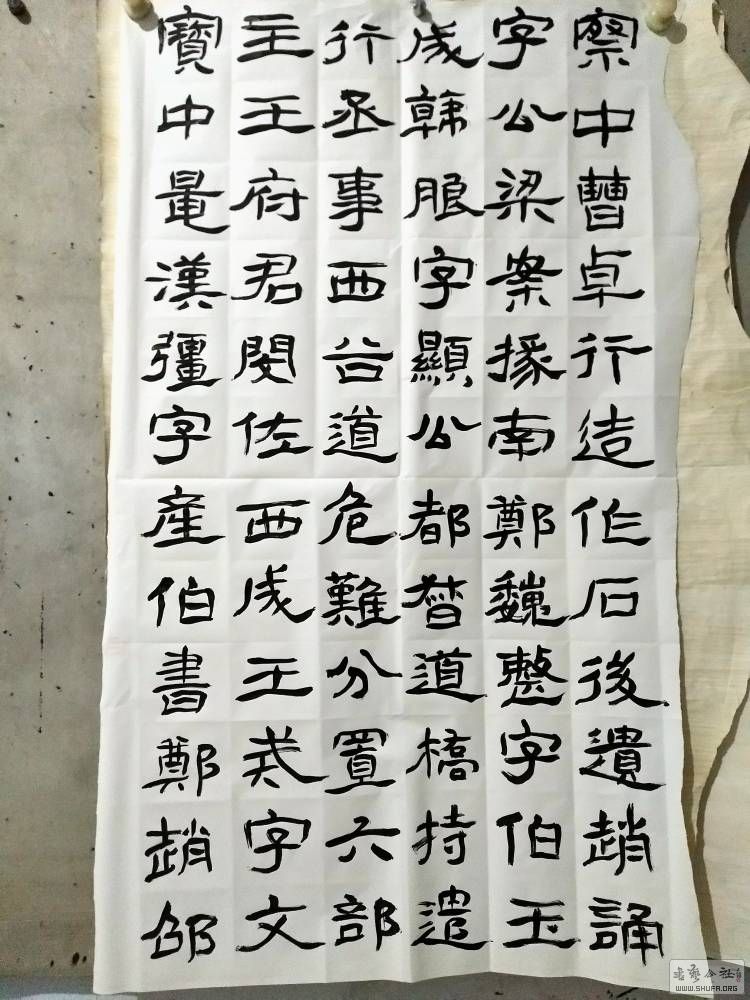 察中曹卓行造作石後遺趙誦
字公梁案掾南鄭魏整字伯玉
成韓朖字顯公都督道橋持遣
行丞事西谷道危難分置六部
主王府君閔佐西成王戒字文
寶中晁漢彊字産伯書鄭趙邵
WWW.SHUFA.ORG